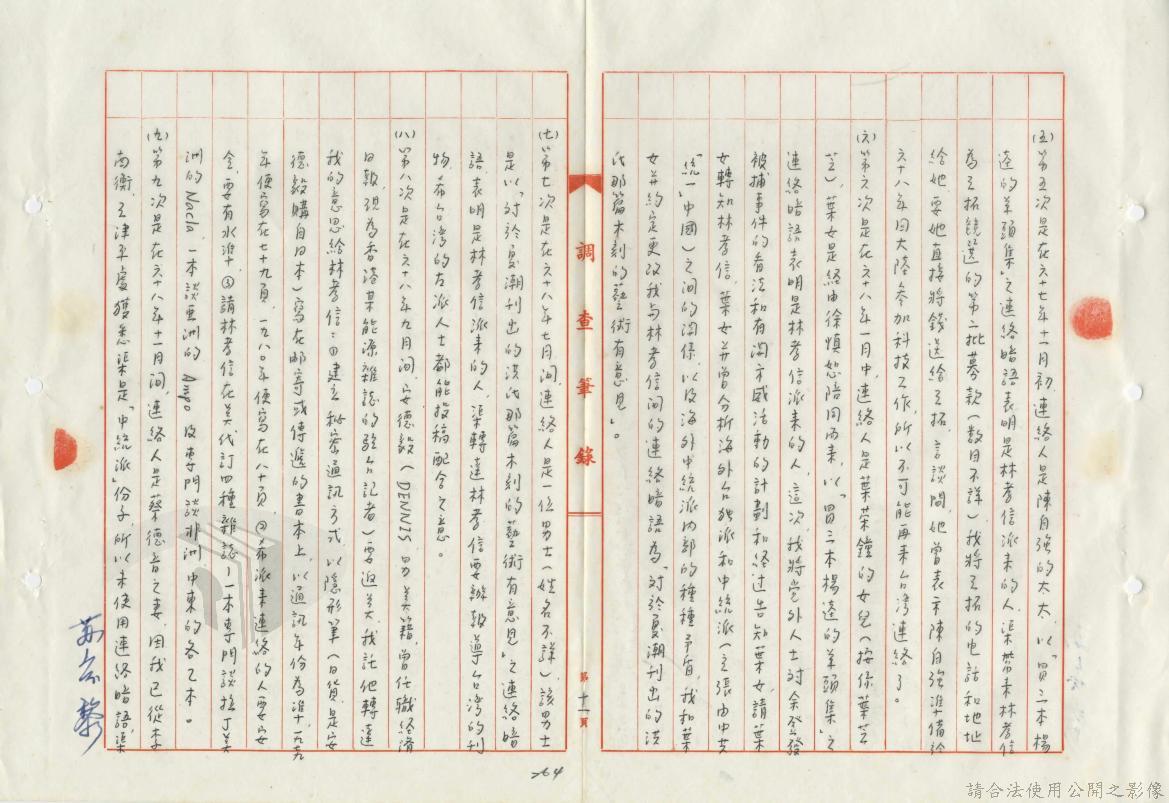 (五)第五次是在六十七年十一月初,連絡人是陳自強的太太,以「買二本楊
逵的羊頭集」之連絡暗語表明是林孝信派來的人,渠帶來林孝信
為王拓競選的第二批募款(數目不詳),我將王拓的電話和地址
給她,要她直接將錢送給王拓,言談間,她曾表示陳自強準備於
六十八年回大陸參加科技工作,所以不可能再來台灣連絡了。
(六)第六次是在六十八年一月中,連絡人是葉榮鐘的女兒(按係葉芸
芝),葉女是經由徐慎恕陪同而來,以「買三本楊逵的羊頭集」之
連絡暗語表明是林孝信派來的人,這次,我將党外人士對余登發
被捕事件的看法和有関示威活動的計劃和経过告知葉女,請葉
女轉知林孝信,葉女並曾分析海外台独派和中統派(主張由中共
「統一」中國)之间的関係,以及海外中統派內部的種種矛盾,我和葉
女並約定更改我与林孝信间的連絡暗語為「対於夏潮刊出的洪
氏那篇木刻的藝術有意見」。
(七)第七次是在六十八年七月间,連絡人是一位男士(姓名不詳),該男士
是以「対於夏潮刊出的洪氏那篇木刻的藝術有意見」之連絡暗
語,表明是林孝信派來的人,渠轉達林孝信要辦報導台湾的刊
物,希台湾的左派人士都能投稿配合之意。
(八)第八次是在六十八年九月间,安德毅(DENNIS,男,美籍,曾任職経濟
日報,現為香港某能源雜誌的駐台記者)要迴美,我託他轉達
我的意思給林孝信:①建立秘密通訊方式,以隱形筆(日貨,是安
德毅購自日本)寫在郵寄或傳遞的書本上,以通訊年份為準,一九七九
年便寫在七十九頁,一九八○年便寫在八十頁,②希派來連絡的人要安
全,要有水準,③請林孝信在美代訂四種雜誌—一本專門談拉丁美
洲的Nacla,一本談亞洲的Ampo及專門談非洲、中東的各乙本。
(九)第九次是在六十八年十一月间,連絡人是蔡德音之妻,因我已從李
南衡、王津平處獲悉渠是「中統派」份子,所以未使用連絡暗語,渠
調查筆錄
第十一頁
264
蘇慶黎
請合法使用公開之影像